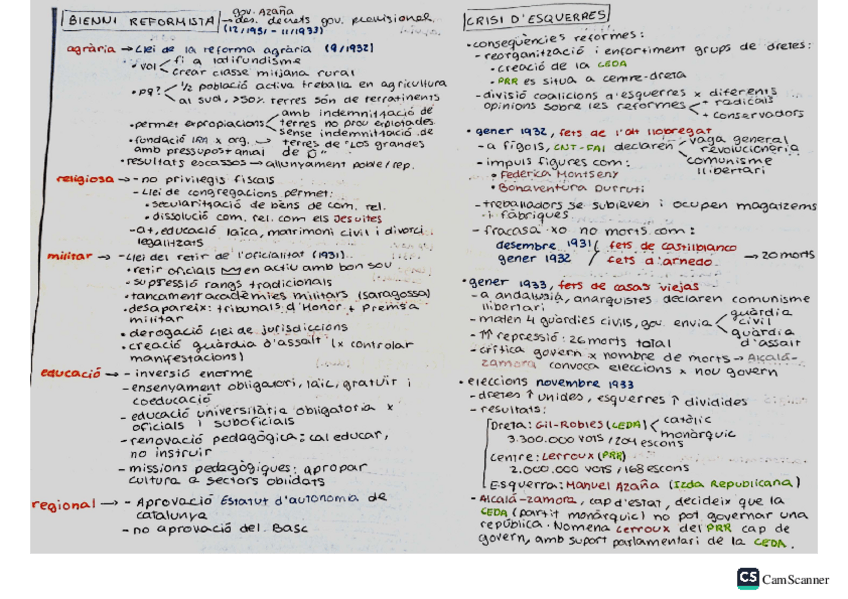 BIENNI REFORMISTA
gov. Azaña
des. decrets gov. provisional
(12/1931 - 11/1933)
agrària → Llei de la reforma agrària (9/1932)
• vol fi a latifundisme
crear classe mitjana rural
• pq? 1/2 població activa treballa en agricultura
al sud, >50% terres són de terratinents
• permet expropiacions amb indemnització de
terres no prou explotades
sense indemnització de
terres de "Los grandes
de
• fundació IRA x org.
amb pressupost anual
• resultats escassos → allunyament poble/rep.
religiosa → - no privilegis fiscals
- Llei de congregacions permet:
• secularització de béns de com. rel.
• dissolució com. rel. com els Jesuïtes
- educació laica, matrimoni civil i divorci
legalitzats
militar → - Llei del retir de l'oficialitat (1931)
• retir oficials en actiu amb bon sou
- supressió rangs tradicionals
• tancament acadèmies militars (Saragossa)
• desapareix: tribunals d'Honor + Premsa
militar
• derogació Llei de jurisdiccions
• creació guàrdia d'assalt (x controlar
manifestacions)
educació → - inversió enorme
- ensenyament obligatori, laic, gratuït i
coeducació
- educació universitària obligatòria x
oficials i suboficials
- renovació pedagògica: cal educar,
no instruir
- missions pedagògiques: apropar
cultura a sectors oblidats
regional → - Aprovació Estatut d'autonomia de
Catalunya
- no aprovació del Basc
CRISI D'ESQUERRES
• conseqüències reformes:
- reorganització i enfortiment grups de dretes:
• creació de la CEDA
• PRR es situa a centre-dreta
- divisió coalicions d'esquerres x diferents
opinions sobre les reformes + radicals
+ conservadors
• gener 1932, fets de l'alt llobregat
- a Fígols, CNT-FAI declaren vaga general
revolucionària
comunisme
llibertari
- impuls figures com:
• Federica Montseny
• Bonaventura Durruti
- treballadors se subleven i ocupen magatzems
i fàbriques
- fracasa xo no morts com:
desembre 1931 fets de castilblanco
gener 1932 fets d'arnedo → 20 morts
• gener 1933, fets de casas viejas
- a andalusia, anarquistes declaren comunisme
llibertari
- maten 4 guàrdies civils, gov. envia guàrdia
civil
guàrdia
d'assalt
- ↑↑ repressió: 26 morts total
- crítica govern x nombre de morts → Alcalá-
zamora convoca eleccions x nou govern
• eleccions novembre 1933
- dretes ↑ unides, esquerres ↑ dividides
- resultats:
Dreta: Gil-Robles (CEDA) catòlic
monàrquic
3.300.000 vots / 204 escons
Centre: Lerroux (PRR)
2.000.000 vots / 168 escons
Esquerra: Manuel Azaña (Izda Republicana)
- Alcalá-zamora, cap d'estat, decideix que la
CEDA (partit monàrquic) no pot governar una
república. Nomena Lerroux del PRR cap de
govern, amb suport parlamentari de la CEDA.
CS CamScanner